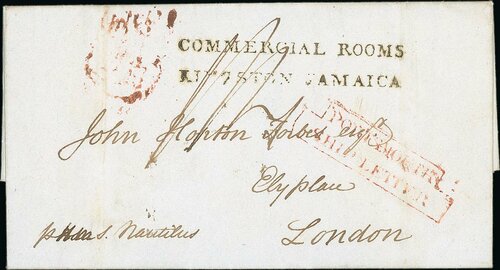 COMMERCIAL ROOMS
KINGSTON JAMAICA
John Horton Forbes Esqr
Ely place
London
PORTSMOUTH
SHIP LETTER
Nautilus